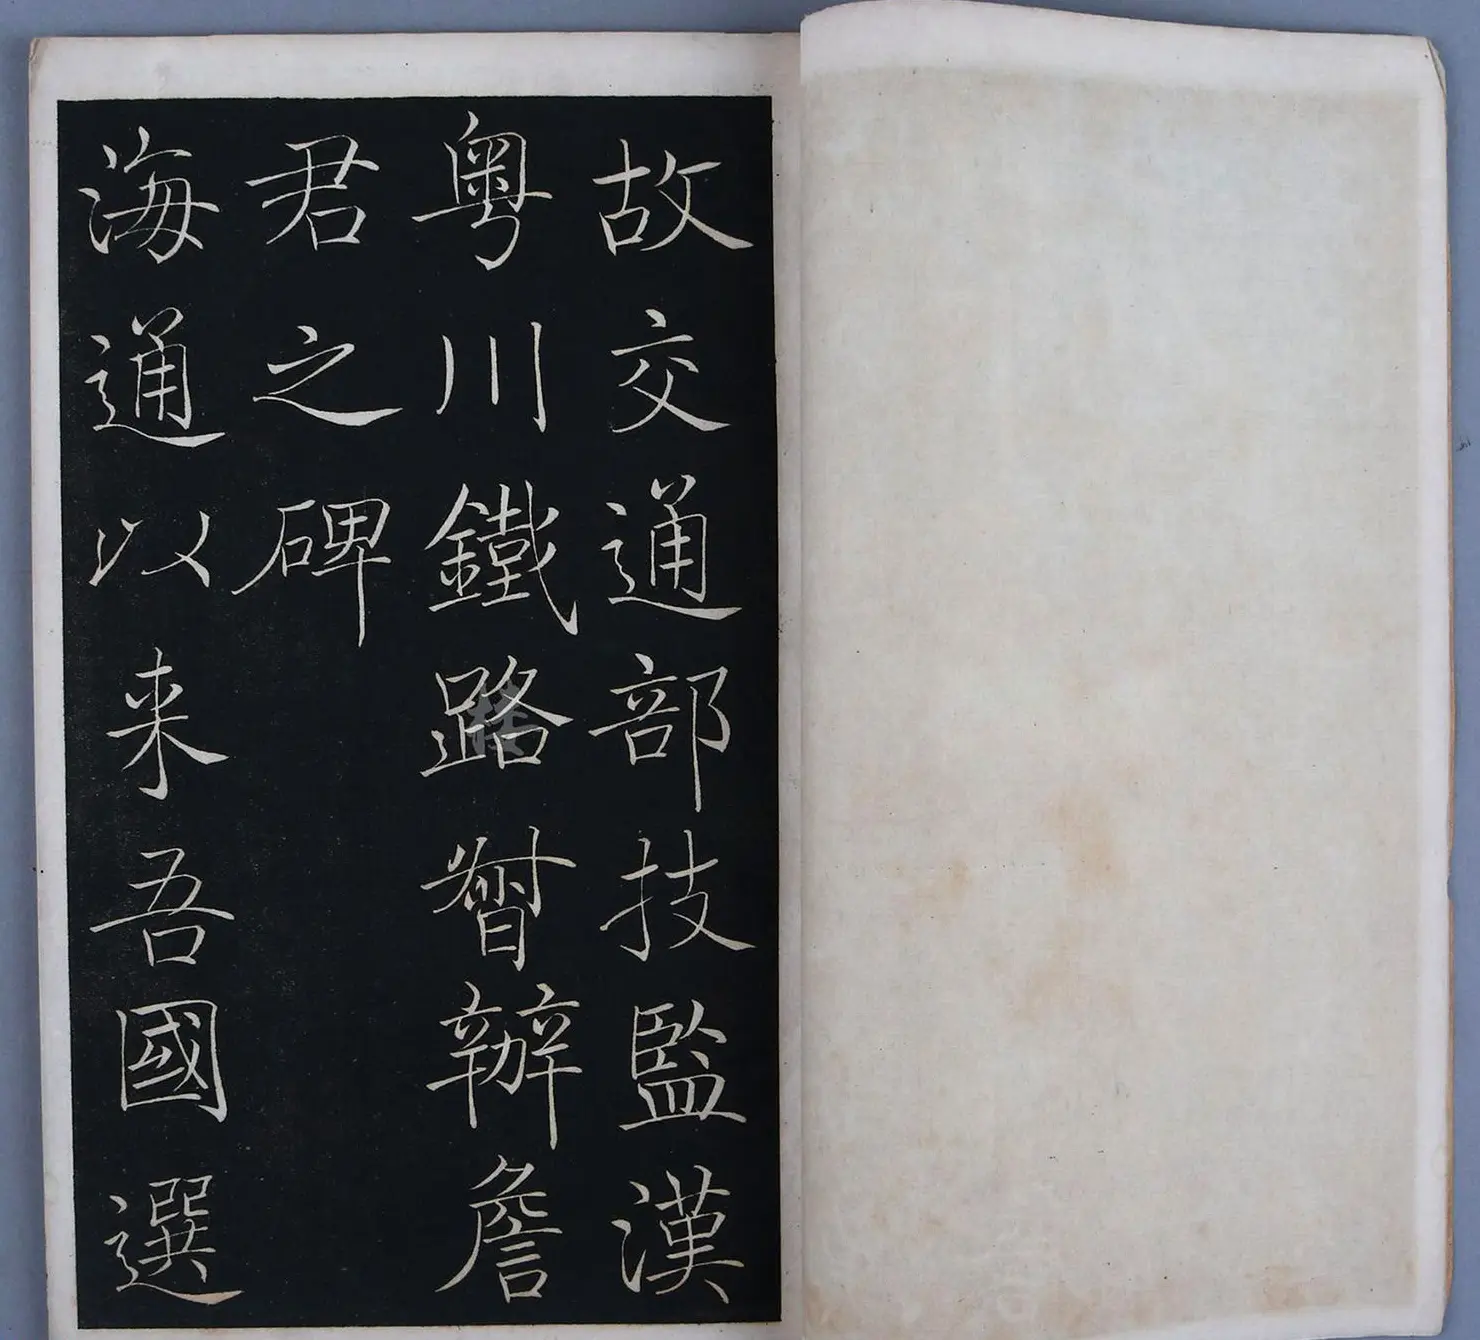 故交通部技監漢
粵川鐵路督辦詹
君之碑
海通以来吾國選